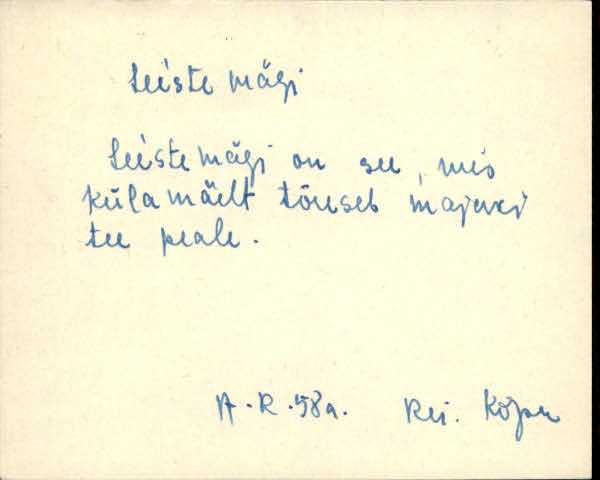 Leiste mägi
Leiste mägi on see, mis
külamäelt tõuseb majurij
tee peale.
A.R. 58a. Rei. Kõpu